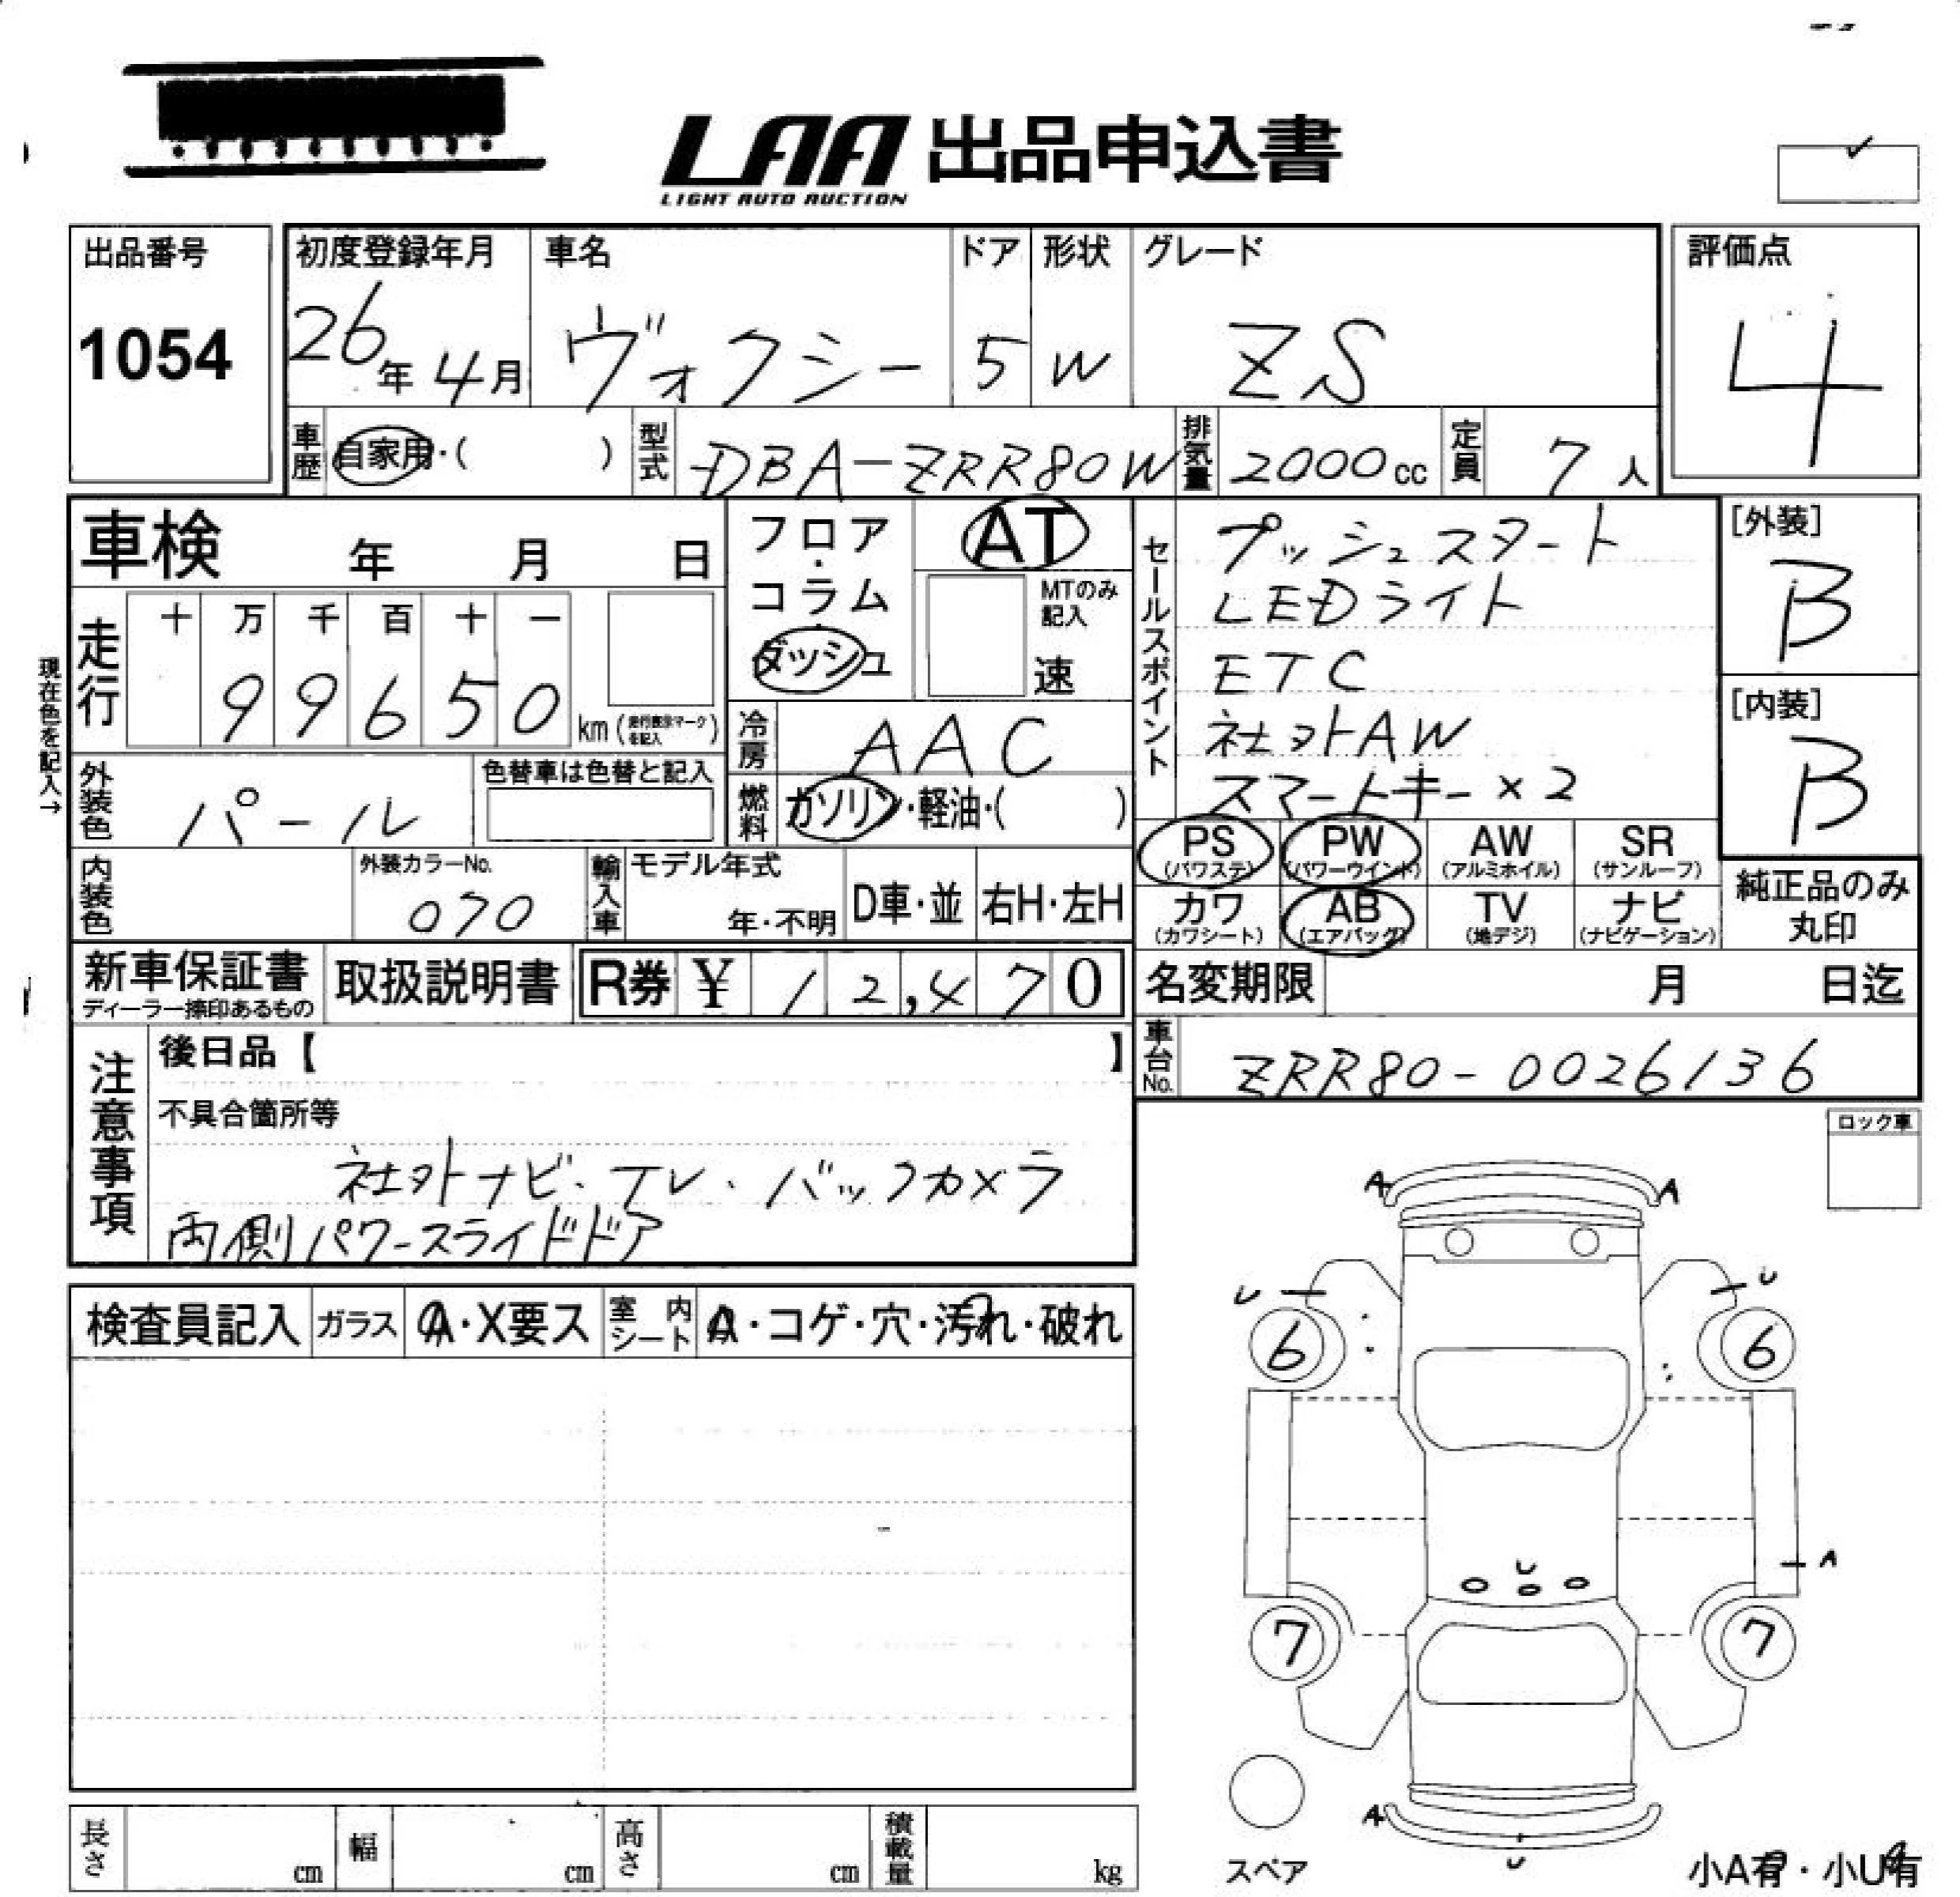 LAA 出品申込書
LIGHT AUTO AUCTION
出品番号 初度登録年月 車名 ドア 形状 グレード 評価点
1054 26年4月 ヴォクシー 5 W ZS 4
車歴 自家用・( ) 型式 DBA-ZRR80W 排気量 2000cc 定員 7人
車検 年 月 日
フロア・コラム・ダッシュ
AT
MTのみ記入
速
セールスポイント
プッシュスタート
LEDライト
ETC
社外AW
スマートキー×2
[外装]
B
[内装]
B
現在色を記入→
走行 十 万 千 百 十 一
99650 km (走行表示マークを記入)
冷房 AAC
外装色 パール 色替車は色替と記入
燃料 ガソリン・軽油・( )
PS (パワステ) PW (パワーウインド) AW (アルミホイル) SR (サンルーフ)
カワ (カワシート) AB (エアバッグ) TV (地デジ) ナビ (ナビゲーション)
純正品のみ丸印
内装色 外装カラーNo. 070 輸入車 モデル年式 年・不明 D車・並 右H・左H
新車保証書 ディーラー捺印あるもの 取扱説明書 R券 ¥ 12,470
名変期限 月 日迄
車台No. ZRR80-0026136
注意事項
後日品【 】
不具合箇所等
社外ナビ・テレ・バックカメラ
両側パワースライドドア
ロック車
検査員記入 ガラス A・X要ス 室内シート A・コゲ・穴・汚れ・破れ
A A
U U
6 6
A
U
7 7
A
U
スペア
小A有・小U有
長さ cm 幅 cm 高さ cm 積載量 kg